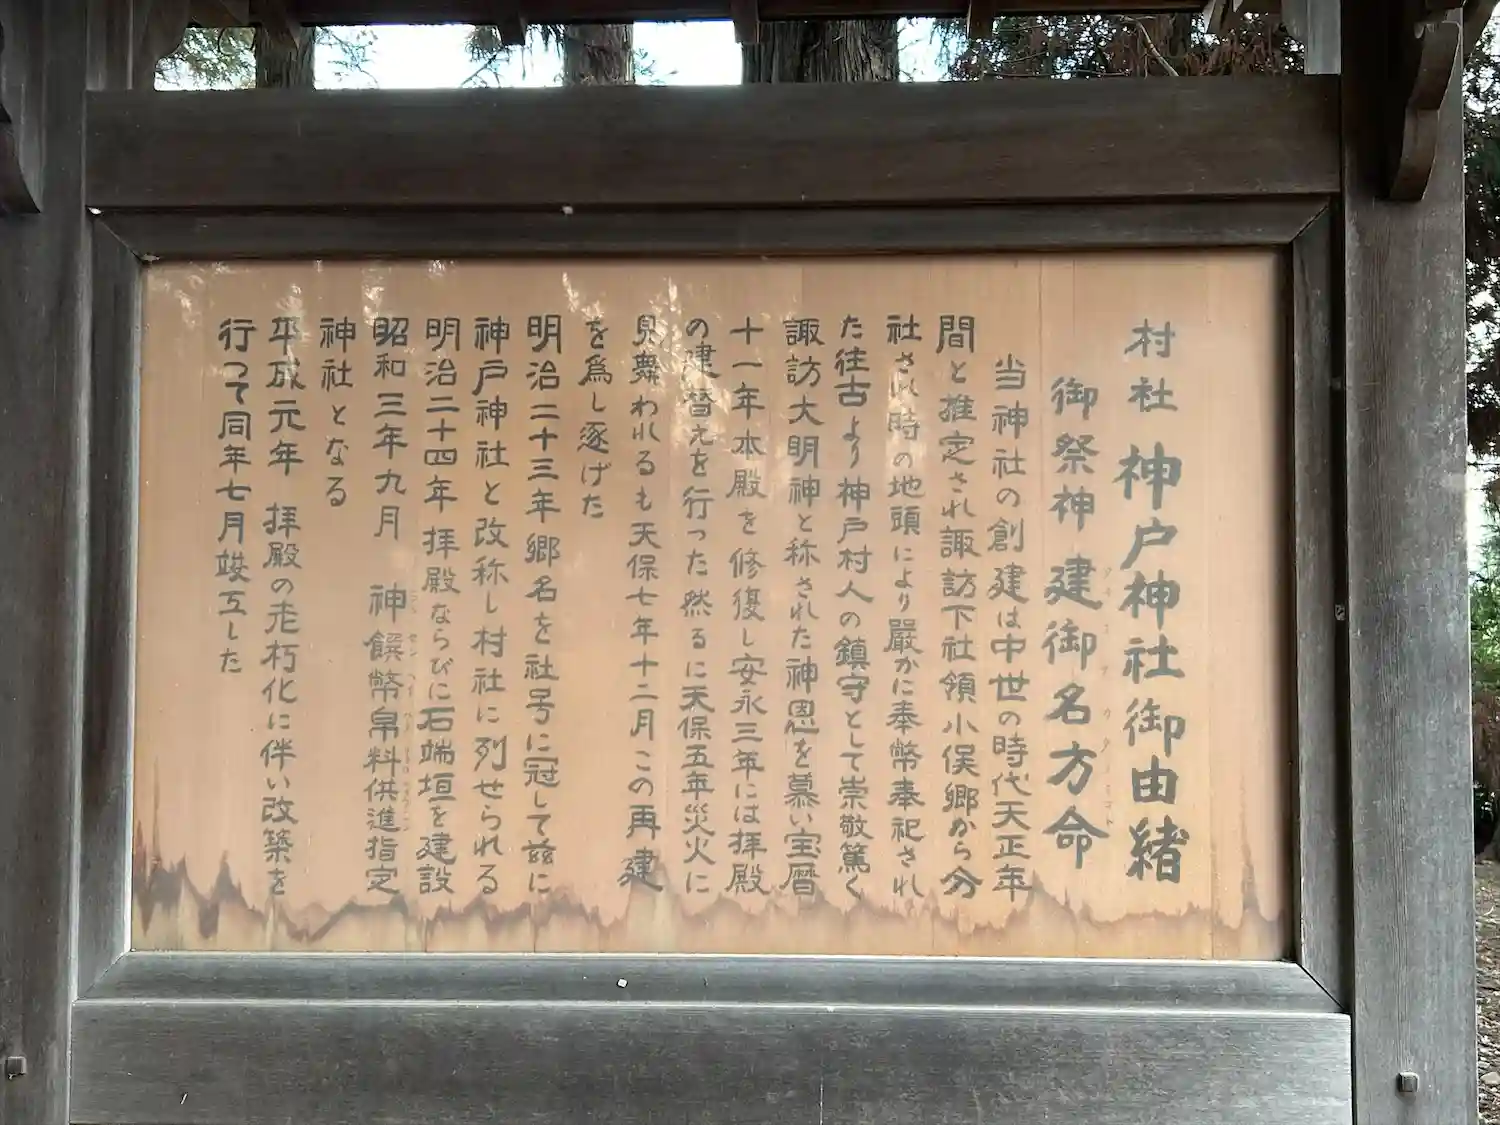 村社 神戸神社御由緒
御祭神 建御名方命
当神社の創建は中世の時代天正年
間と推定され諏訪下社領小俣郷から分
社され時の地頭により嚴かに奉幣奉祀され
た往古より神戸村人の鎮守として崇敬篤く
諏訪大明神と称された神恩を慕い宝暦
十一年本殿を修復し安永三年には拝殿
の建替えを行った然るに天保五年災火に
見舞われるも天保七年十二月この再建
を爲し逐げた
明治二十三年郷名を社号に冠して茲に
神戸神社と改称し村社に列せられる
明治二十四年拝殿ならびに石端垣を建設
昭和三年九月 神饌幣帛料供進指定
神社となる
平成元年 拝殿の老朽化に伴い改築を
行って同年七月竣工した